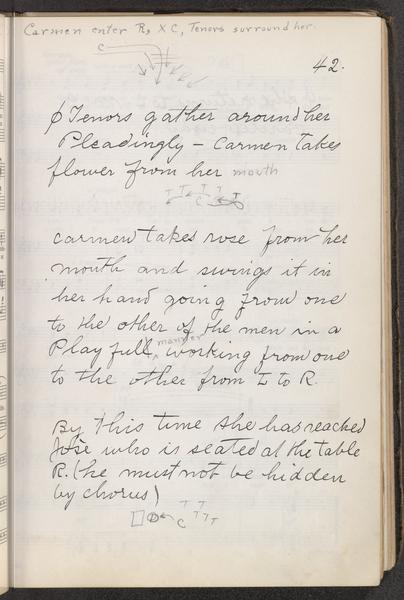 Carmen enter R, X C, Tenors surround her.
C
42.
φ Tenors gather around her
Pleadingly - Carmen takes
flower from her mouth
T T T T T
C
Carmen takes rose from her
mouth and swings it in
her hand going from one
to the other of the men in a
Playfull manner working from one
to the other from L to R.
By this time she has reached
José who is seated at the table
R. (he must not be hidden
by chorus)
T T
C T T T